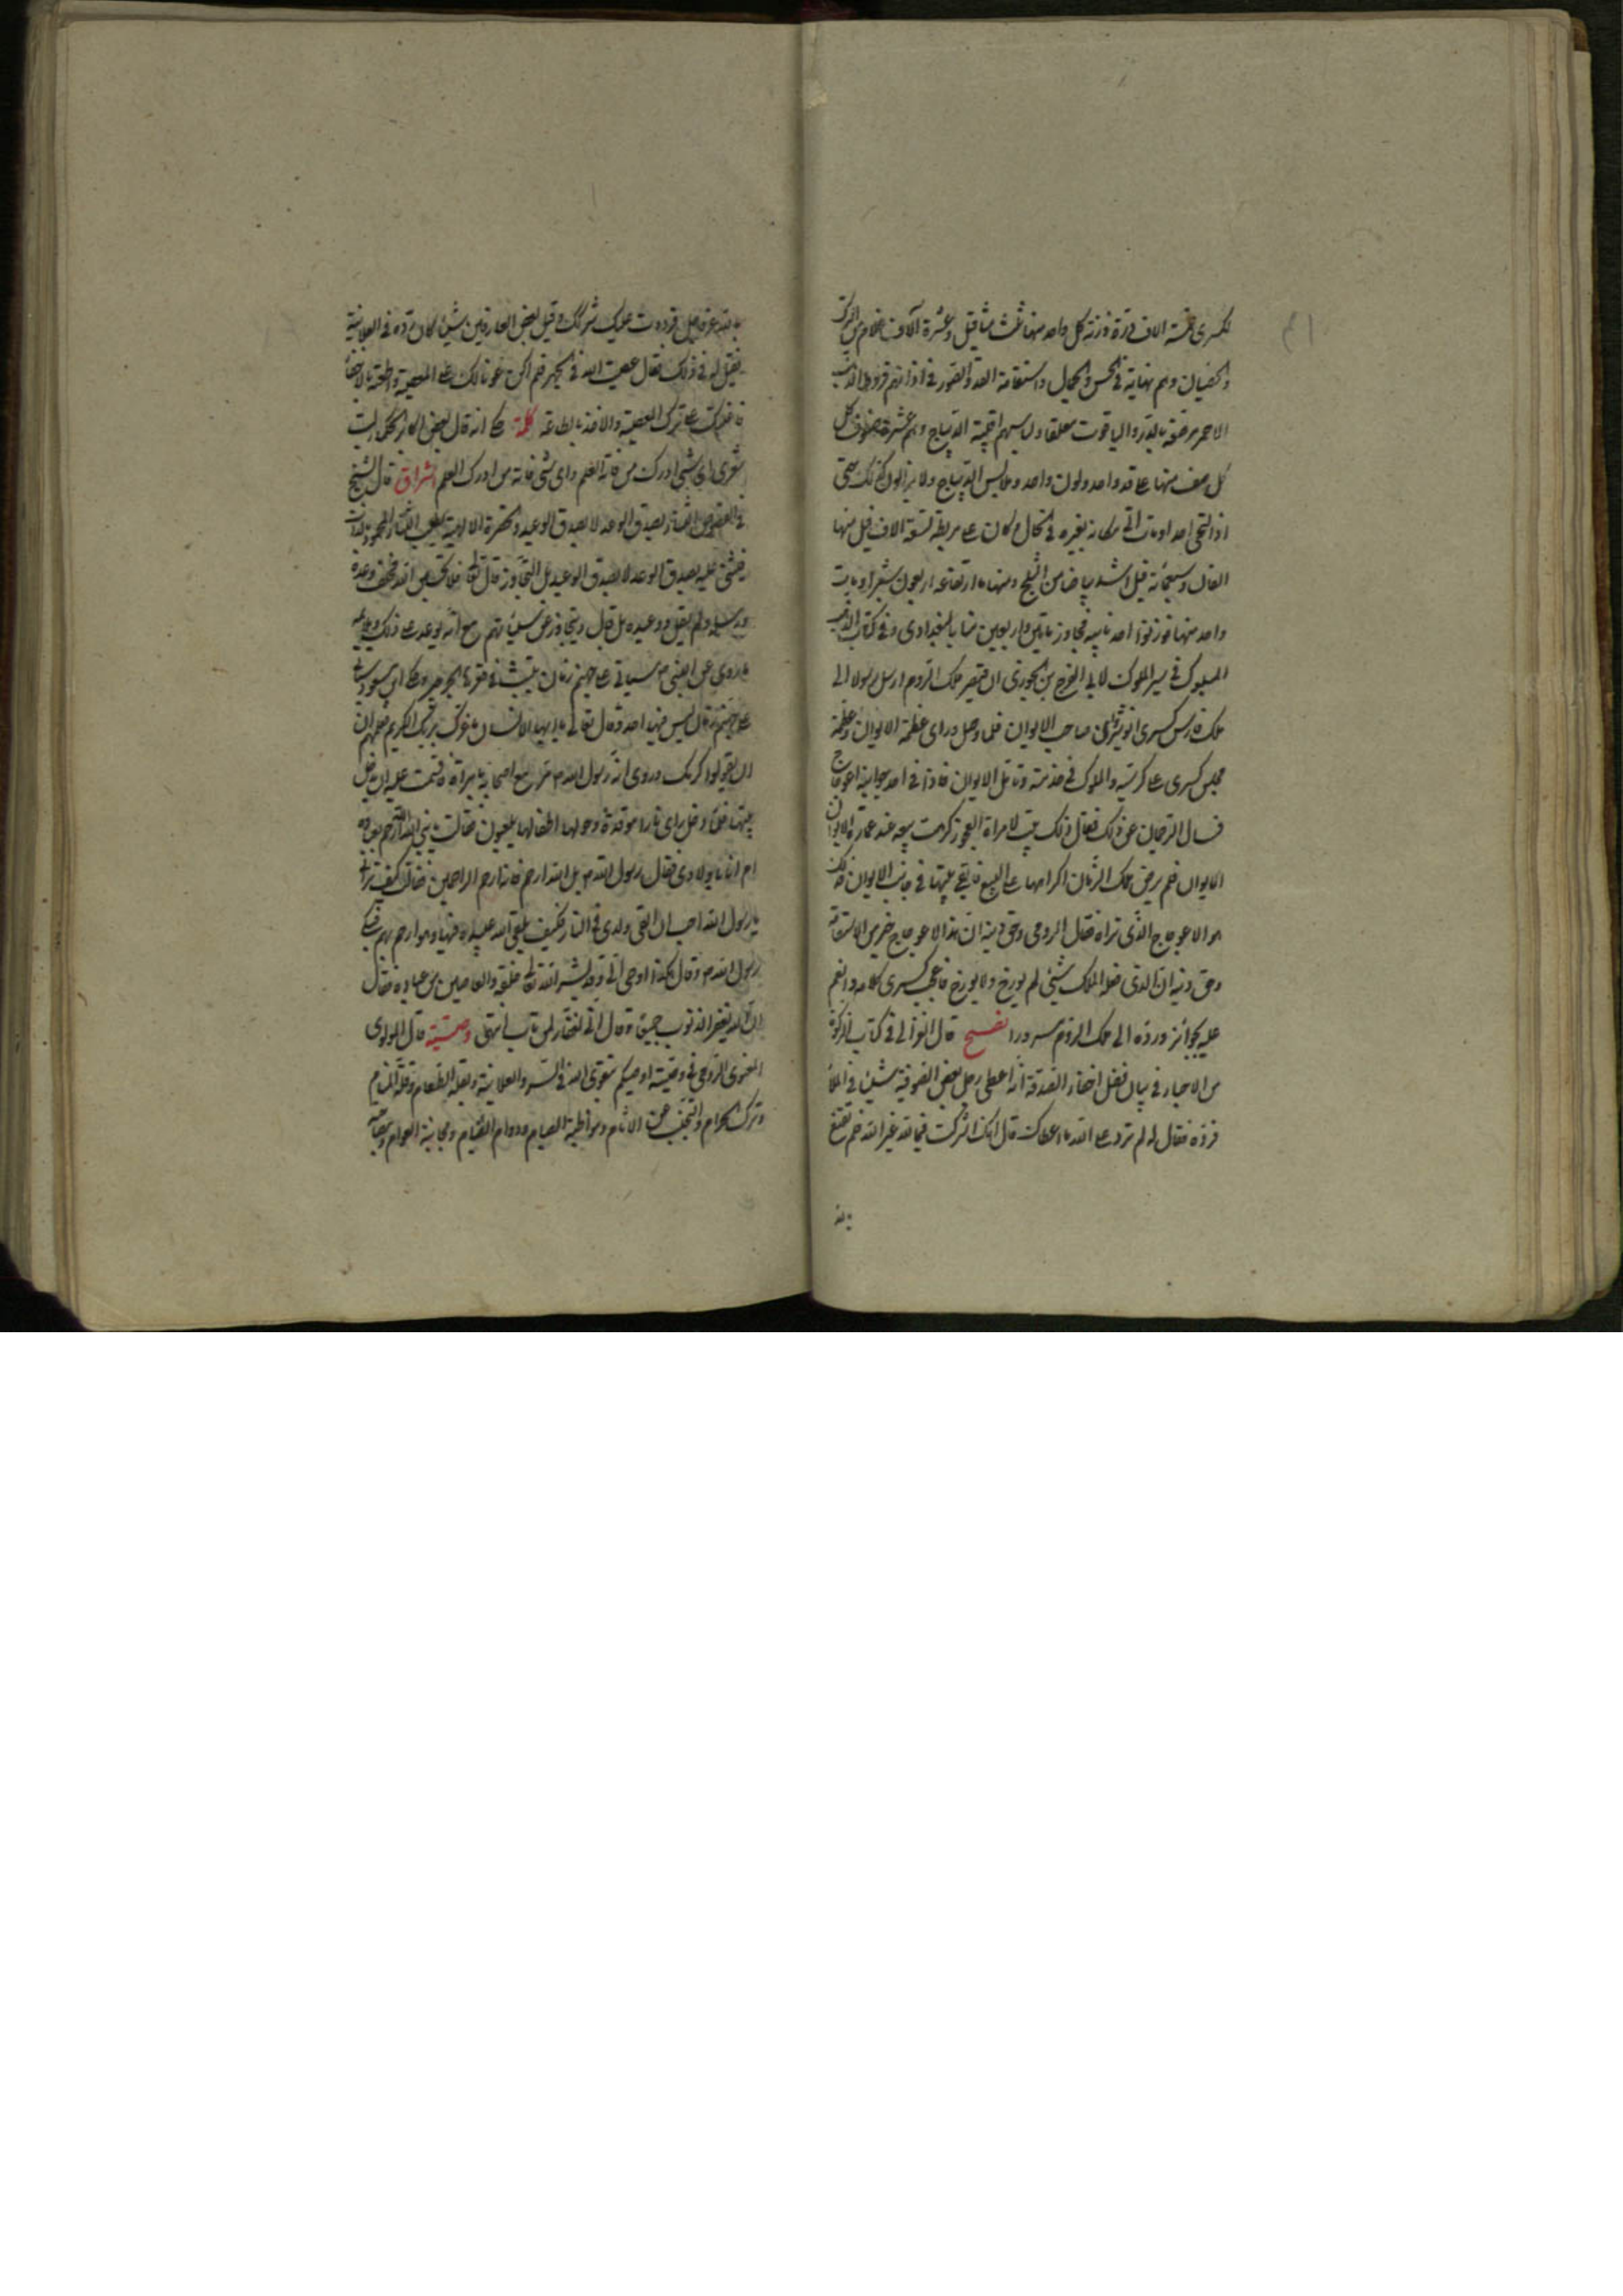 لكسرى خمسة الاف درة وزنة كل واحد منها ثلث مثاقيل وعشرة آلاف غلام من الترك
والخصيان وهم نهاية في الحسن والجمال واستقامة القد والقدود في اذانهم قروط الذهب
الاحمر مرصعة بالدر والياقوت معلقا ولباسهم اقبية الديباج وهم عشرة صفوف كل
كل صف منها على قد واحد ولون واحد وملابس الديباج ولا يزالون كذلك حتى
اذا التحى احد او مات اتى مكانه بغيره في الحال وكان على مربطه تسعة الاف فيل منها
الفان وسبعمائة فيل اشد بياضا من الثلج ومنها ما ارتفاعه اربعون شبرا ومات
واحد منها فوزنوا احد نابيه فجاوز مائتين واربعين منا بالبغدادي وفي كتاب الذهب
المسبوك في سير الملوك لابي الفرج بن الجوزي ان قيصر ملك الروم ارسل رسولا الى
ملك فارس كسرى انوشروان صاحب الايوان فلما وصل وراى عظمة الايوان وعظمة
مجلس كسرى على كرسيه والملوك في خدمته وتامل الايوان فاذا في احد جوانبه اعوجاج
فسال الترجمان عن ذلك فقال ذلك بيت لامراة العجوز كرهت بيعه عند عمارة الايوان
الايوان فلم يرض ملك الزمان اكراهها على البيع فابقى بيتها في جانب الايوان فذلك
هو الاعوجاج الذي تراه فقال الرومي وحق دينه ان هذا الاعوجاج خير من الاستقامة
وحق دينه ان الذي فعله الملك شيئ لم يورخ ولا يورخ فاعجب كسرى كلامه وانعم
عليه بجوائز ورده الى ملك الروم مسرورا نصح قال الغزالي في كتاب الزكوة
من الاحيا في بيان فضل اخفاء الصدقة انه اعطى رجل بعض الصوفية شيئ في الملأ
فرده فقال له لم ترد على الله ما اعطاك قال انك اشركت فيما لله غير الله فلم تقنع
بالله
بالله عز وجل فرددت عليك شركك وقيل بعض العارفين شيئ كان رده في العلانية
فقيل له في ذلك فقال عصيت الله في الجهر فلم اكن عونا لك على المعصية واطعته بالاخفا
فاعنتك على ترك المعصية والاخذ بطاعته كلمة حكى انه قال بعض اكابر الحكما ليت
شعرى اى شيئ ادرك من فاته العلم واى شيئ فاته من ادرك العلم اشراق قال الشيخ
في الفصوص الثناء بصدق الوعد لا بصدق الوعيد والحضرة الالهية تطلب الثناء المحمود بالذات
فيثنى عليه بصدق الوعد لا بصدق الوعيد بل التجاوز قال تعالى فلا تحسبن الله مخلف وعده
ورسله ولم يقل ووعيده بل قال ويتجاوز عن سيئاتهم مع انه توعد على ذلك ويؤيده
ما روى عن النبي ص سياتي على جهنم زمان ينبت في قعرها الجرجير
على جهنم زمان ليس فيها احد وقال تعالى يا ايها الانسان ما غرك بربك الكريم فلهم ان
ان يقولوا كرمك وروى ان رسول الله ص مر مع اصحابه بامراة فاقسمت عليه ان يدخل
بيتها فلما دخل راى نارا موقدة وحولها اطفالها يلعبون فقالت يا نبي الله الله ارحم بعباده
ام انا باولادى فقال رسول الله ص بل الله ارحم فانه ارحم الراحمين فقالت كيف تراني
يا رسول الله احب ان القى ولدى في النار فكيف يلقى الله عبيده فيها وهو ارحم بهم فبكى
رسول الله ص وقال هكذا اوحى الى وقد بشر الله تعالى خلقه والعاصين من عباده فقال
ان الله يغفر الذنوب جميعا وقال اني لغفار لمن تاب انتهى وصيته قال المولوى
المعنوى الرومي في وصيته اوصيكم بتقوى الله في السر والعلانية وبقلة الطعام وقلة المنام
وترك الحرام والتجنب عن الاثام ومواظبة الصيام ودوام القيام ومجانبة العوام